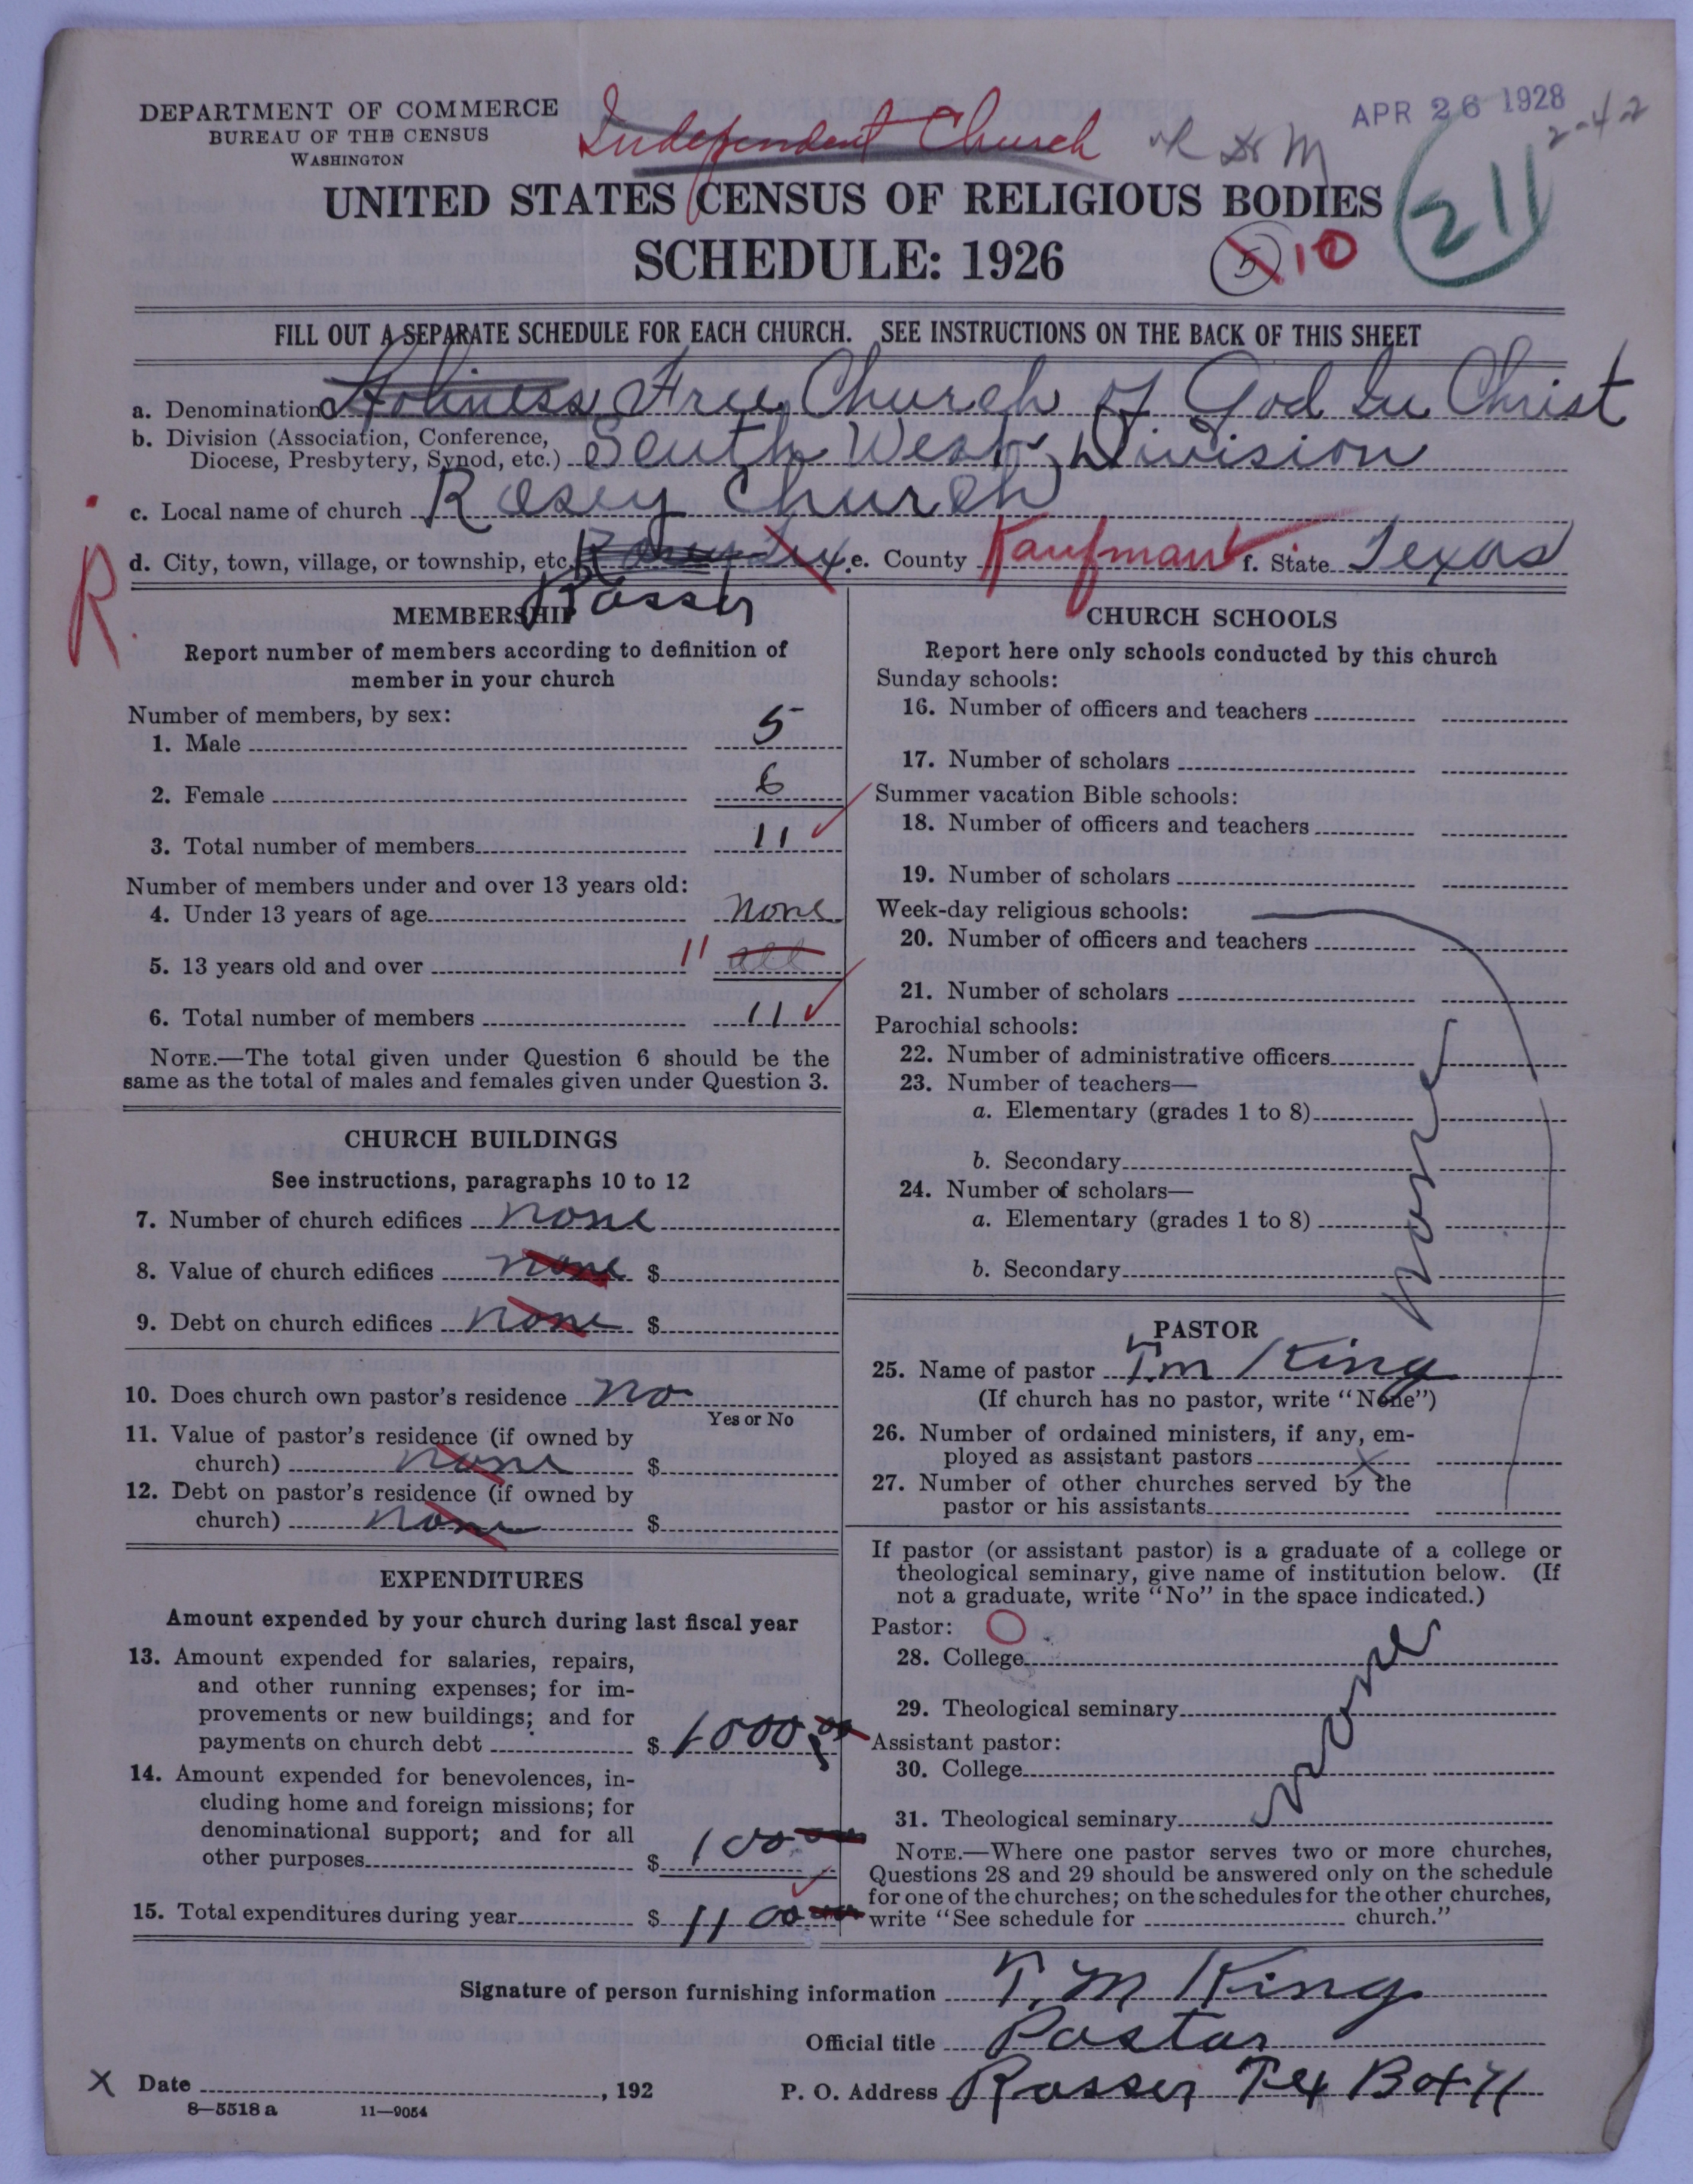 DEPARTMENT OF COMMERCE
BUREAU OF THE CENSUS
WASHINGTON
Independent Church
APR 26 1928
2-4-2
UNITED STATES CENSUS OF RELIGIOUS BODIES
21
SCHEDULE: 1926
5 10
FILL OUT A SEPARATE SCHEDULE FOR EACH CHURCH. SEE INSTRUCTIONS ON THE BACK OF THIS SHEET
a. Denomination Holiness Free Church of God In Christ
b. Division (Association, Conference,
Diocese, Presbytery, Synod, etc.) South West Division
c. Local name of church Rosey Church
R.
d. City, town, village, or township, etc. Rosser e. County Kaufman f. State Texas
MEMBERSHIP
Report number of members according to definition of
member in your church
Number of members, by sex:
1. Male 5
2. Female 6
3. Total number of members 11
Number of members under and over 13 years old:
4. Under 13 years of age none
5. 13 years old and over 11 all
6. Total number of members 11
NOTE.—The total given under Question 6 should be the
same as the total of males and females given under Question 3.
CHURCH BUILDINGS
See instructions, paragraphs 10 to 12
7. Number of church edifices none
8. Value of church edifices none $
9. Debt on church edifices none $
10. Does church own pastor's residence no
Yes or No
11. Value of pastor's residence (if owned by
church) none $
12. Debt on pastor's residence (if owned by
church) none $
EXPENDITURES
Amount expended by your church during last fiscal year
13. Amount expended for salaries, repairs,
and other running expenses; for im-
provements or new buildings; and for
payments on church debt $ 1000.00
14. Amount expended for benevolences, in-
cluding home and foreign missions; for
denominational support; and for all
other purposes $ 100
15. Total expenditures during year $ 1100
CHURCH SCHOOLS
Report here only schools conducted by this church
Sunday schools:
16. Number of officers and teachers
17. Number of scholars
Summer vacation Bible schools:
18. Number of officers and teachers
19. Number of scholars
Week-day religious schools:
20. Number of officers and teachers
21. Number of scholars
Parochial schools:
22. Number of administrative officers
23. Number of teachers—
a. Elementary (grades 1 to 8)
b. Secondary
24. Number of scholars—
a. Elementary (grades 1 to 8)
b. Secondary
none
PASTOR
25. Name of pastor T.M King
(If church has no pastor, write "None")
26. Number of ordained ministers, if any, em-
ployed as assistant pastors X
27. Number of other churches served by the
pastor or his assistants
If pastor (or assistant pastor) is a graduate of a college or
theological seminary, give name of institution below. (If
not a graduate, write "No" in the space indicated.)
Pastor: O
28. College
29. Theological seminary
Assistant pastor:
30. College
31. Theological seminary
none
NOTE.—Where one pastor serves two or more churches,
Questions 28 and 29 should be answered only on the schedule
for one of the churches; on the schedules for the other churches,
write "See schedule for church."
Signature of person furnishing information T. M King
Official title Pastor
X Date , 192
P. O. Address Rosser Tex Box 41
8—5518 a 11—9054